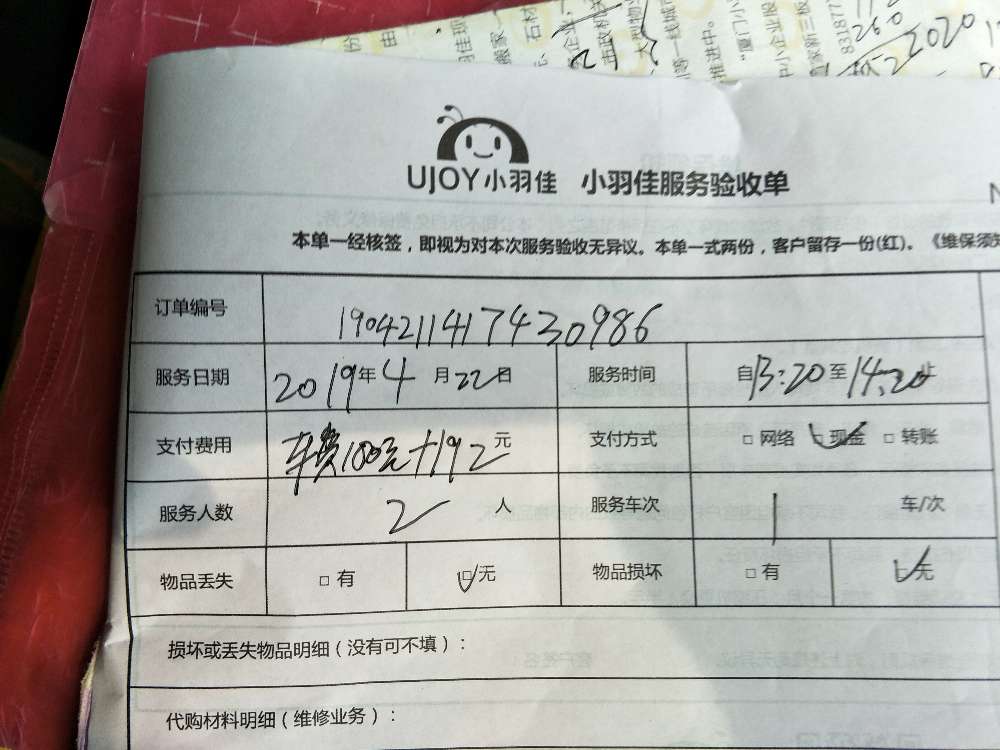 260
2020
UJOY小羽佳 小羽佳服务验收单
本单一经核签，即视为对本次服务验收无异议。本单一式两份，客户留存一份(红)。《维保须知
订单编号 1904211417430986
服务日期 2019年4月22日 服务时间 自13:20至14:20止
支付费用 车费180元+192元 支付方式 □网络 ☑现金 □转账
服务人数 2人 服务车次 1车/次
物品丢失 □有 ☑无 物品损坏 □有 ☑无
损坏或丢失物品明细（没有可不填）：
代购材料明细（维修业务）：